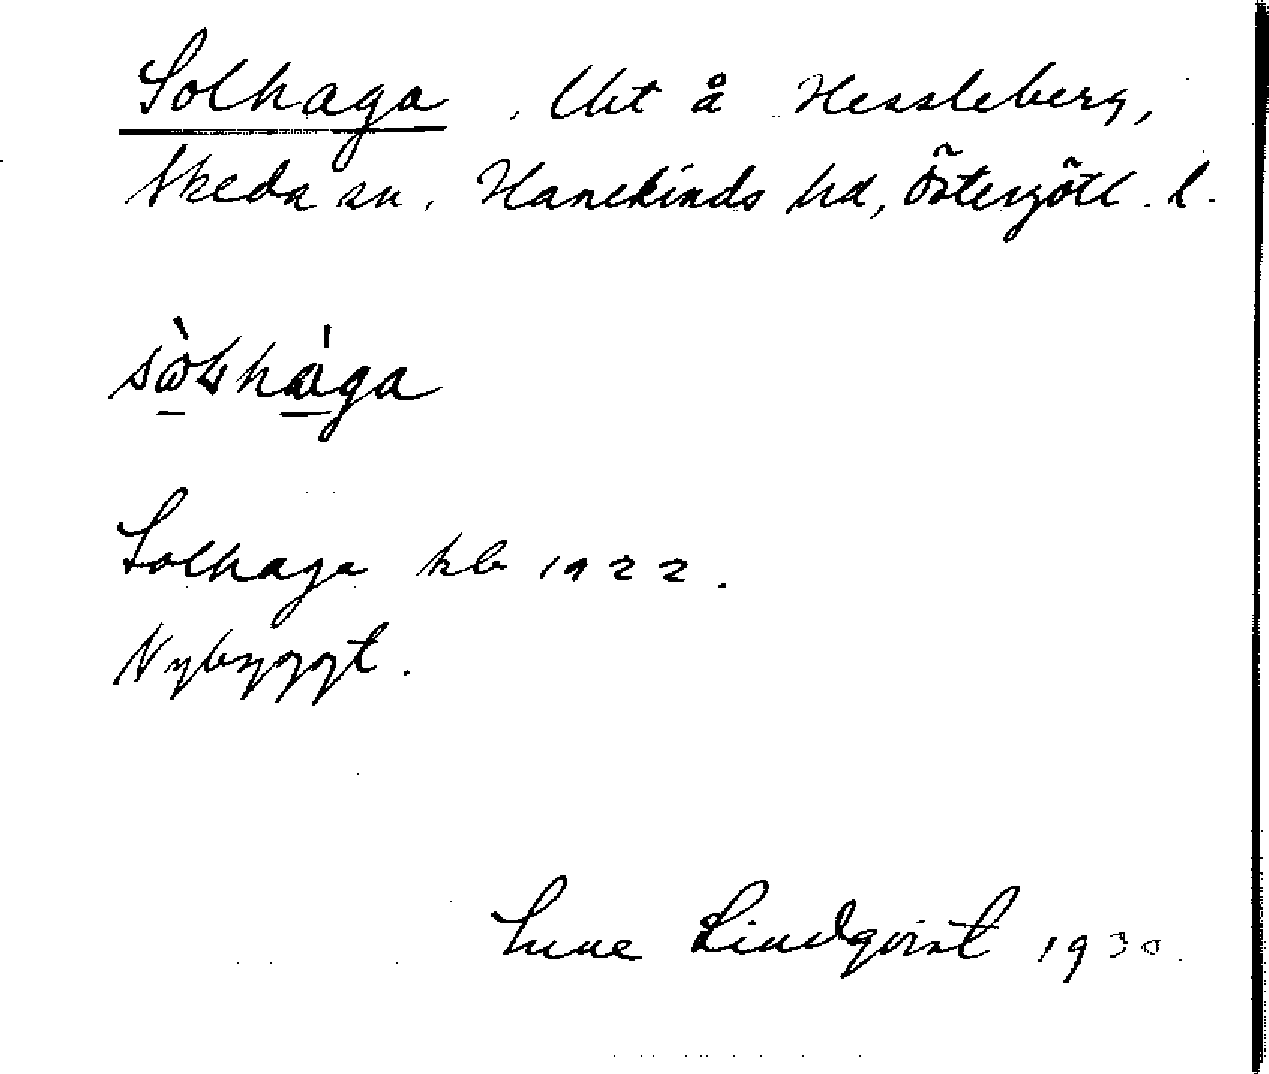 Solhaga, Utr å Hessleberg,
Skeda sn, Hanekinds hd, Östergötl. l.
sòlhàga
Solhaga kb 1922.
Nybyggt.
Sune Lindqvist 1930.